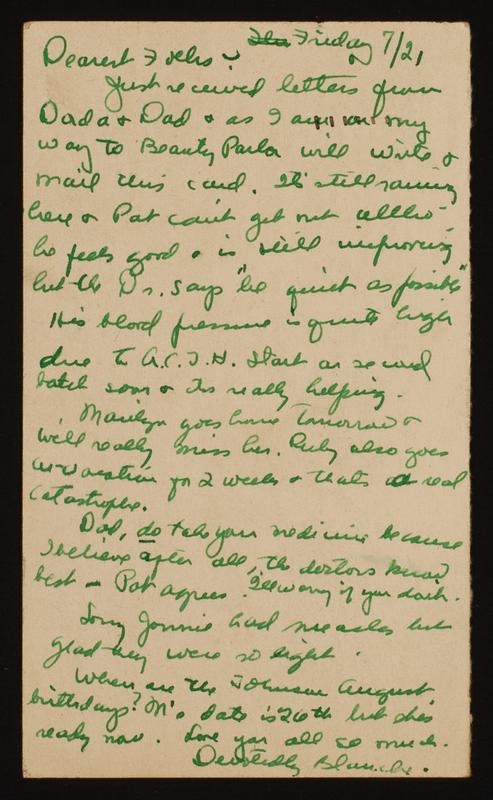 Friday 7/21
Dearest Folks:
Just received letters from
Dada & Dad & as I am on my
way to Beauty Parlor will write &
mail this card. It's still raining
here & Pat can't get out altho'
he feels good & is still improving
but the Dr. says "be quiet as possible"
His blood pressure is quite high
due to A.C.T.H. Start on second
batch soon & its really helping.
Marilyn goes home tomorrow &
we'll really miss her. Ruby also goes
on vacation for 2 weeks & thats a real
catastrophe.
Dad, do take your medicine because
I believe after all, the doctors know
best – Pat agrees. I'll worry if you don't.
Sorry Jonnie had measles but
glad they were so light.
When are the Johnson August
birthdays? M's date is 26th but she's
ready now. Love you all so much.
Devotedly Blanche.